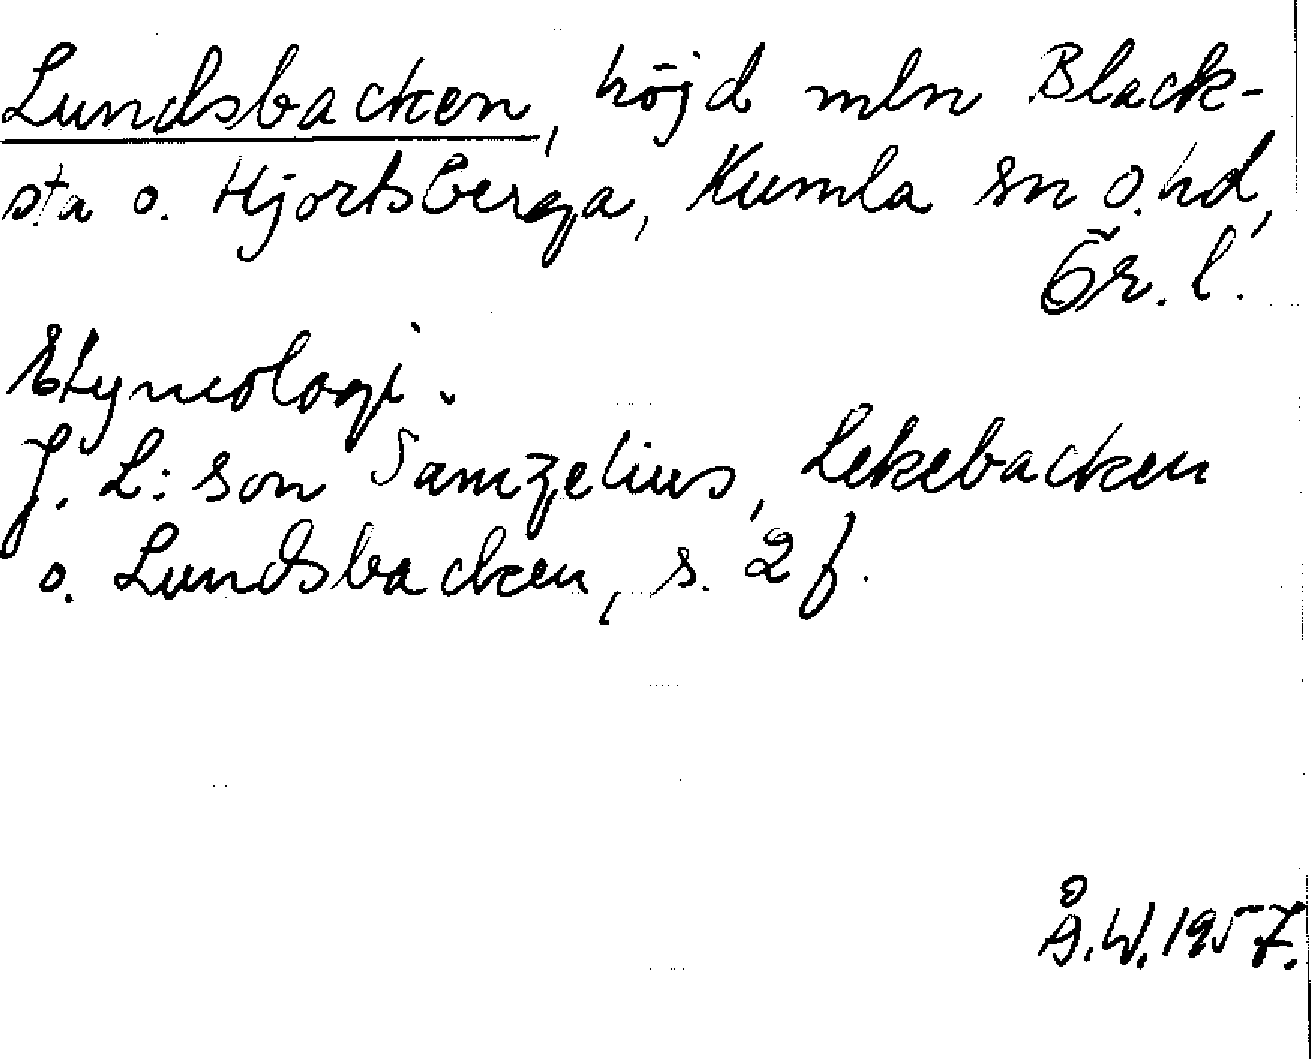 Lundsbacken, höjd mln Black-
sta o. Hjortsberga, Kumla sn o. hd,
Ör. l.
Etymologi.
J. L:son Samzelius, Lekebacken
o. Lundsbacken, s. 2 f.
Å.W. 1957.